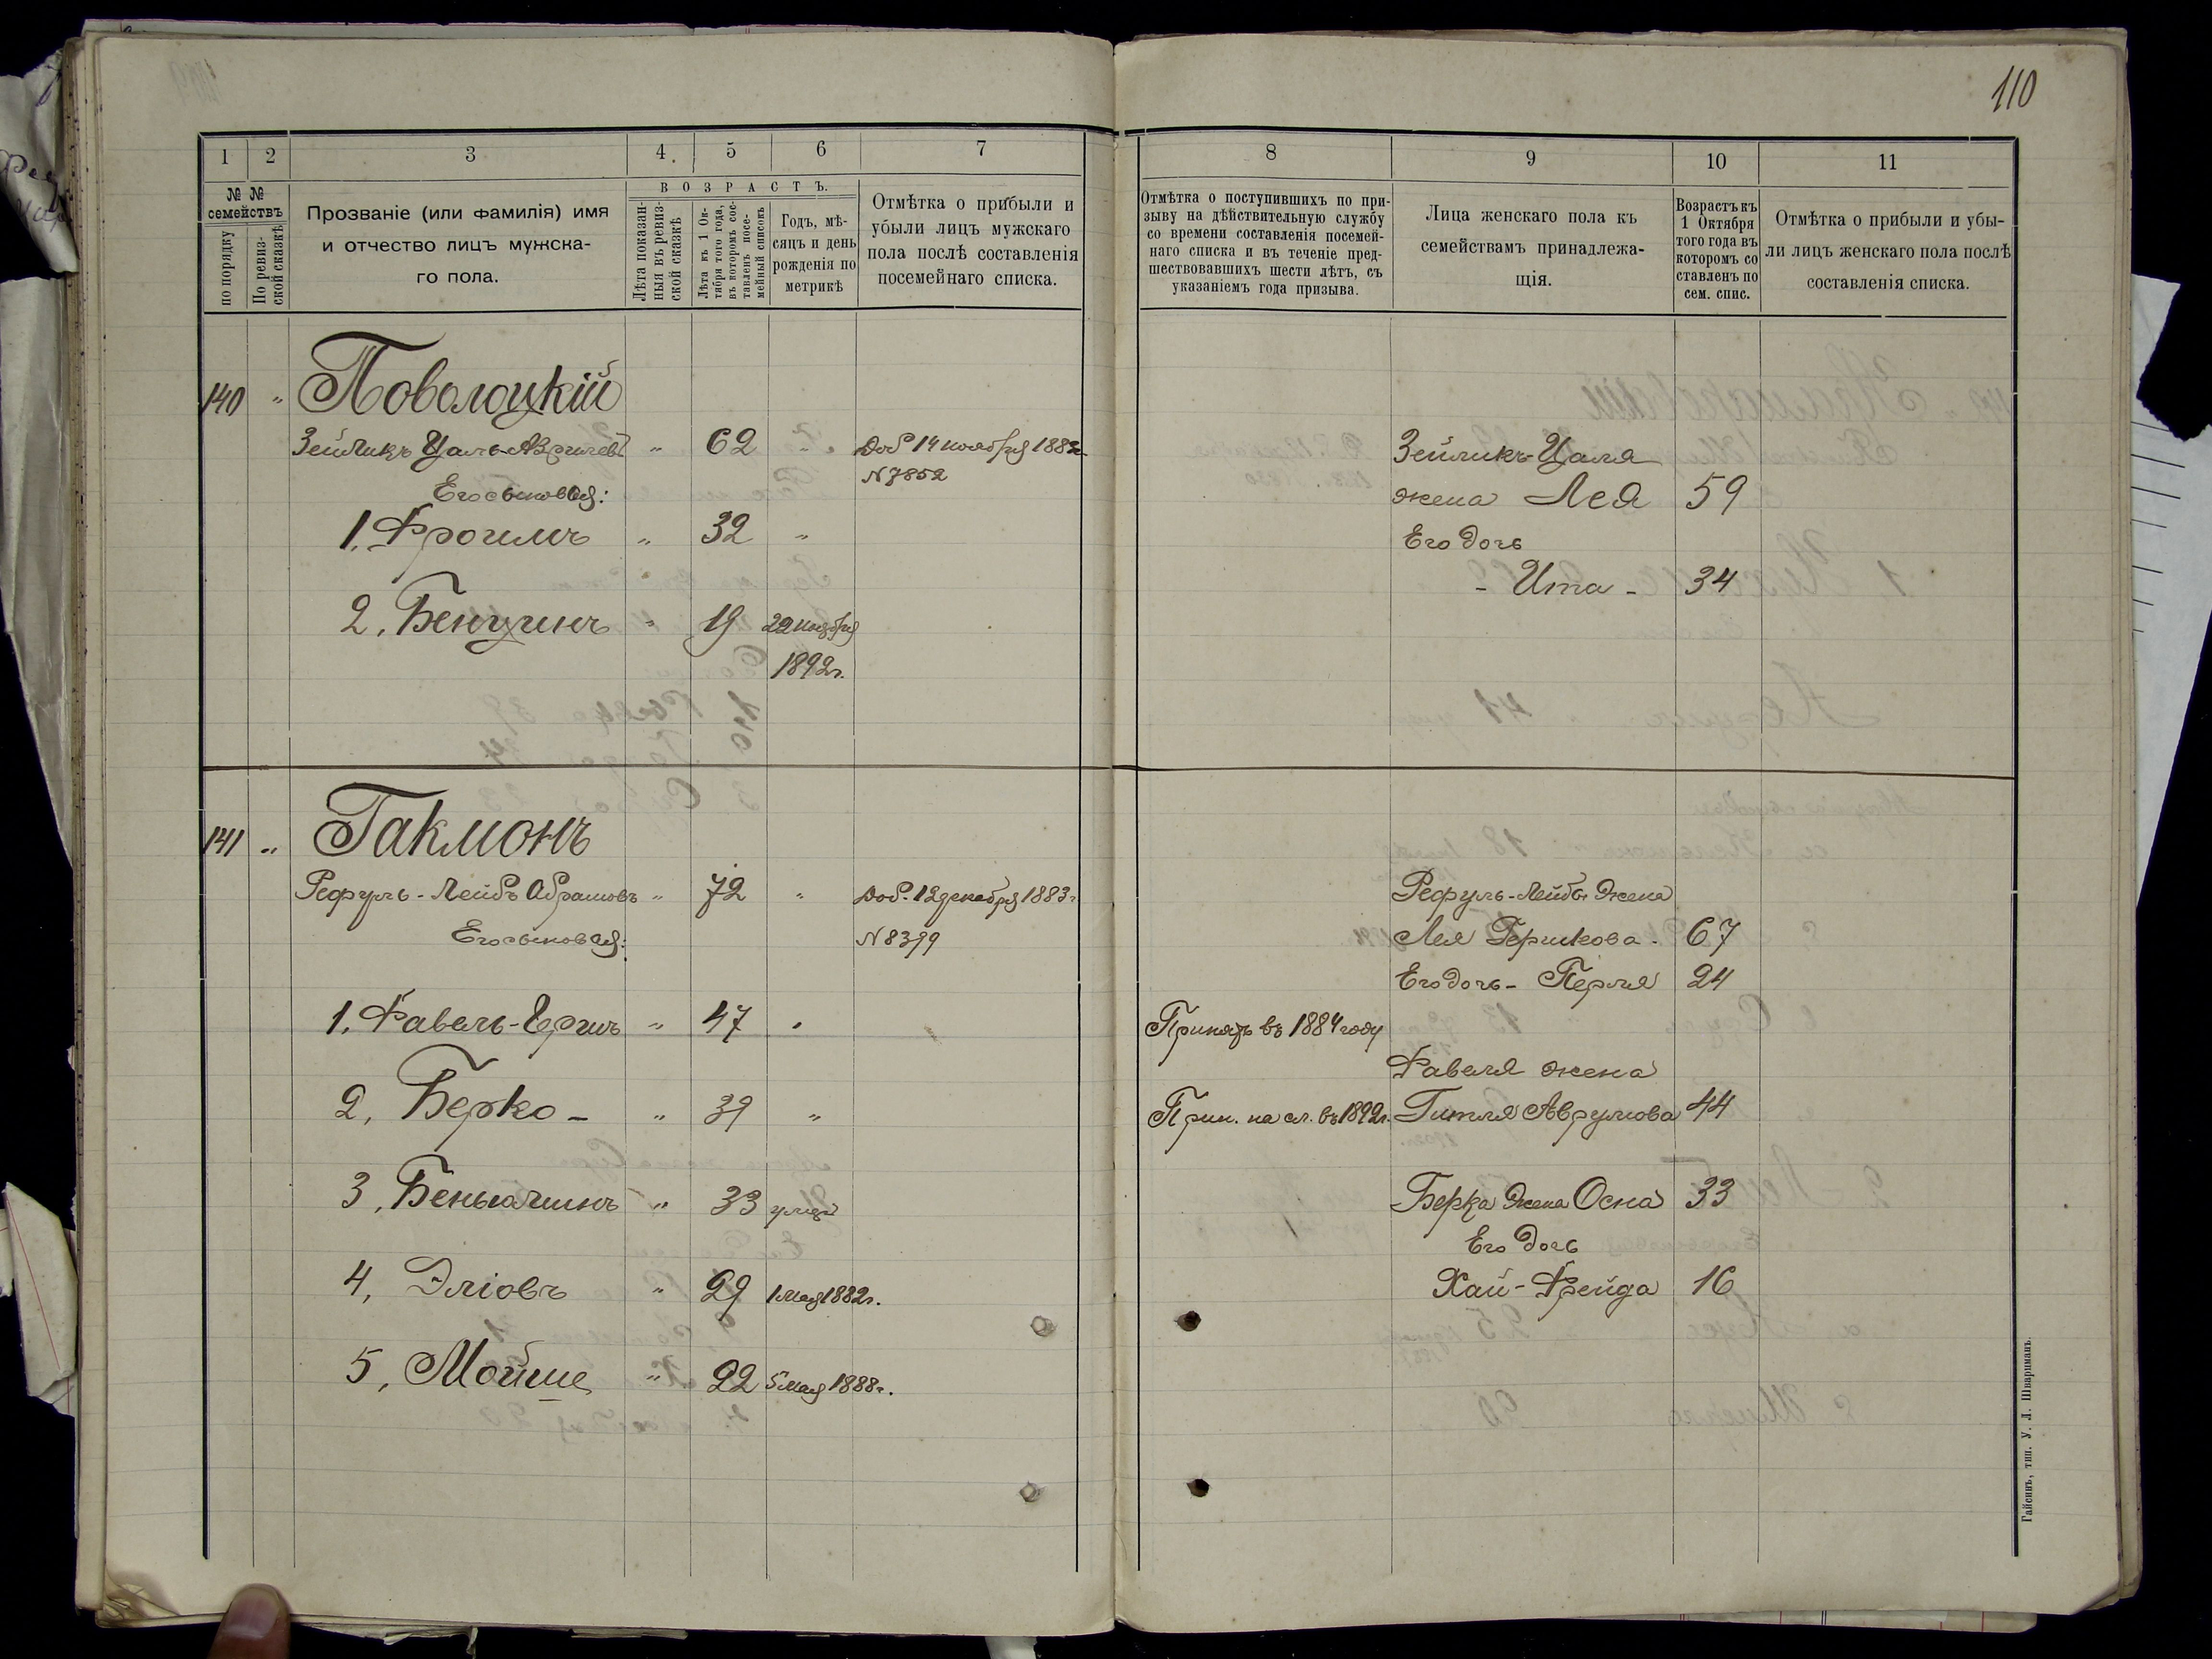 110
1 2 3 4. 5 6 7
№ № семействъ
по порядку
По ревизской сказкѣ
Прозваніе (или фамилія) имя
и отчество лицъ мужска-
го пола.
ВОЗРАСТЪ.
Лѣта показан-
ныя въ ревиз-
ской сказкѣ
Лѣта къ 1 Ок-
тября того года,
въ которомъ сос-
тавленъ посе-
мейный списокъ
Годъ, мѣ-
сяцъ и день
рожденія по
метрикѣ
Отмѣтка о прибыли и
убыли лицъ мужскаго
пола послѣ составленія
посемейнаго списка.
140 " Поволоцкій
Зейликъ Цаль-Аврумовъ " 62 " Доб 14 ноября 1882г
Его сыновья: N 7852
1. Фроимъ " 32 "
2. Бенцинъ " 19 22 ноября
1892г.
141 " Гакмонъ
Рефуль-Лейбъ Абрамовъ " 72 " Доб. 12 декабря 1883г
Его сыновья: N 8399
1. Фавель-Гершъ " 47 "
2. Берко - " 39 "
3. Беньяминъ " 33
4. Эліовъ " 29 1 Мая 1882г.
5. Мойше " 22 5 Мая 1888г.
8 9 10 11
Отмѣтка о поступившихъ по при-
зыву на дѣйствительную службу
со времени составленія посемей-
наго списка и въ теченіе пред-
шествовавшихъ шести лѣтъ, съ
указаніемъ года призыва.
Лица женскаго пола къ
семействамъ принадлежа-
щія.
Возрастъ къ
1 Октября
того года въ
которомъ со
ставленъ по
сем. спис.
Отмѣтка о прибыли и убы-
ли лицъ женскаго пола послѣ
составленія списка.
Зейликъ-Цаля
жена Лея 59
Его дочь
- Ита - 34
Рефуль-Лейбы жена
Лея Гершкова. 67
Его дочь - Перля 24
Принятъ въ 1884 году
Фавеля жена
Прин. на сл. въ 1892г. Гитля Аврумова 44
Берка жена Осна 33
Его дочь
Хай-Фрейда 16
Гайсинъ, тип. У. Л. Шварцманъ.